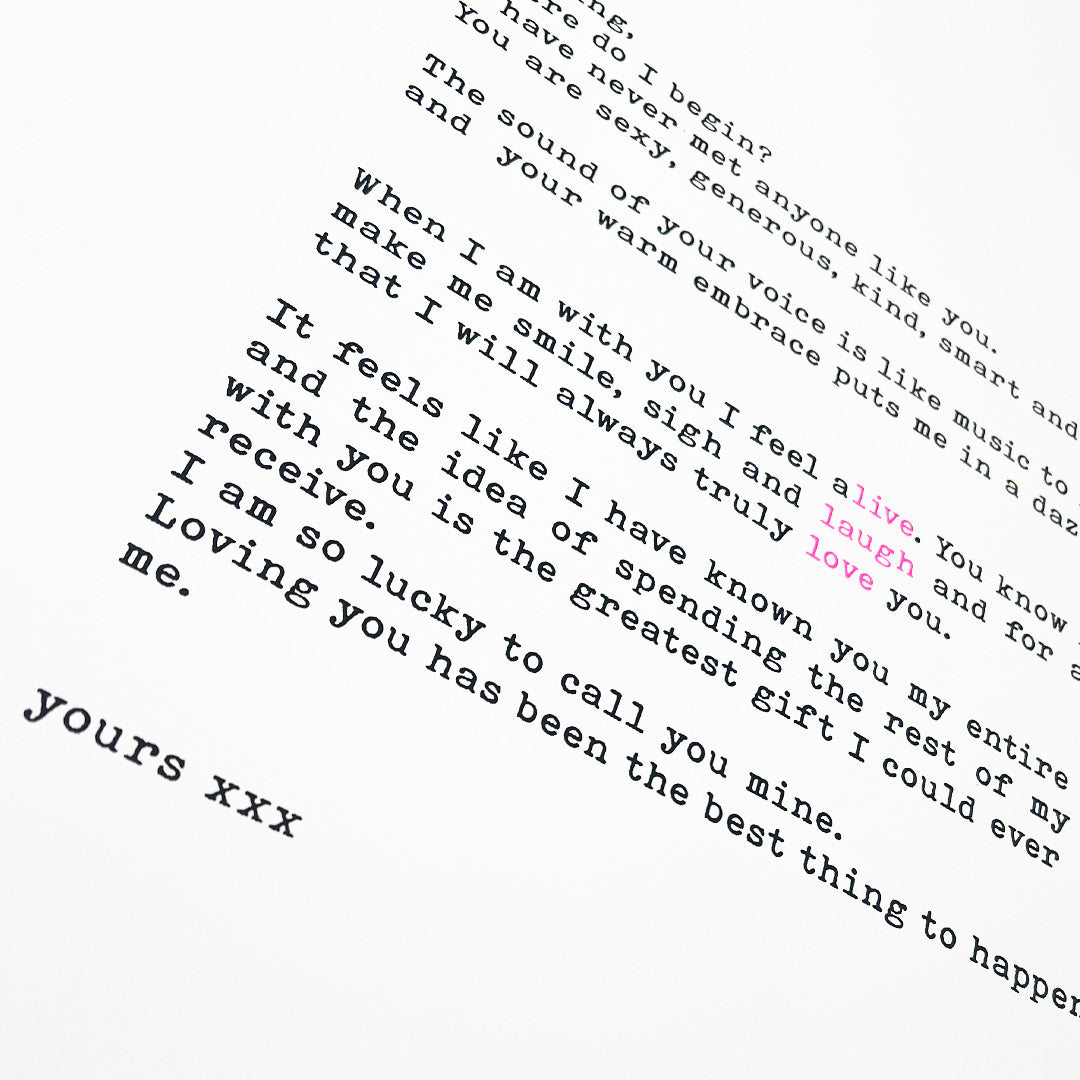 do I begin?
have never met anyone like you.
You are sexy, generous, kind, smart and
The sound of your voice is like music to
and your warm embrace puts me in a
When I am with you I feel alive. You know
make me smile, sigh and laugh and for
that I will always truly love you.
It feels like I have known you my entire
and the idea of spending the rest of my
with you is the greatest gift I could ever
receive.
I am so lucky to call you mine.
Loving you has been the best thing to happen
me.
yours xxx